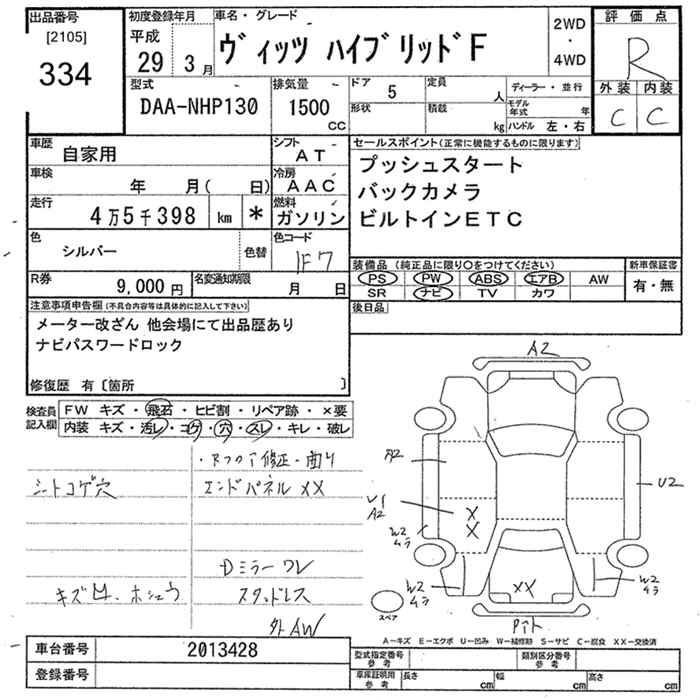 出品番号
[2105]
334
初度登録年月
平成
29 3月
車名・グレード
ヴィッツ ハイブリッドF
2WD
・
4WD
評価点
R
外装 内装
C C
型式
DAA-NHP130
排気量
1500
CC
ドア 5
定員 人
形状
積載 kg
ディーラー・並行
モデル年式 年
ハンドル 左・右
車歴
自家用
シフト
AT
車検
年 月( 日)
冷房
AAC
走行
4万5千398 km *
燃料
ガソリン
色
シルバー
色替
色コード
1F7
R券
9,000円
名変通知期限
月 日
セールスポイント(正常に機能するものに限ります)
プッシュスタート
バックカメラ
ビルトインETC
装備品(純正品に限り〇をつけてください)
PS PW ABS エアB AW
SR ナビ TV カワ
新車保証書
有・無
後日品
注意事項申告欄(不具合内容等は具体的に記入して下さい)
メーター改ざん 他会場にて出品歴あり
ナビパスワードロック
修復歴 有〔箇所 〕
検査員記入欄
FW キズ・飛石・ヒビ割・リペア跡・×要
内装 キズ・汚レ・コゲ・穴・スレ・キレ・破レ
修正・曲り
シートコゲ穴
エンドパネル XX
Dミラー ワレ
キズ 凹 ホシュウ
スタッドレス
外AW
A2
A2
U1
A2
X
X
W2
ムラ
U2
W2
ムラ
XX
W2
ムラ
スペア
A-キズ E-エクボ U-凹み W-補修跡 S-サビ C-腐食 XX-交換済
車台番号
2013428
登録番号
型式指定番号
参考
類別区分番号
参考
車庫証明用
参考
長さ cm
幅 cm
高さ cm